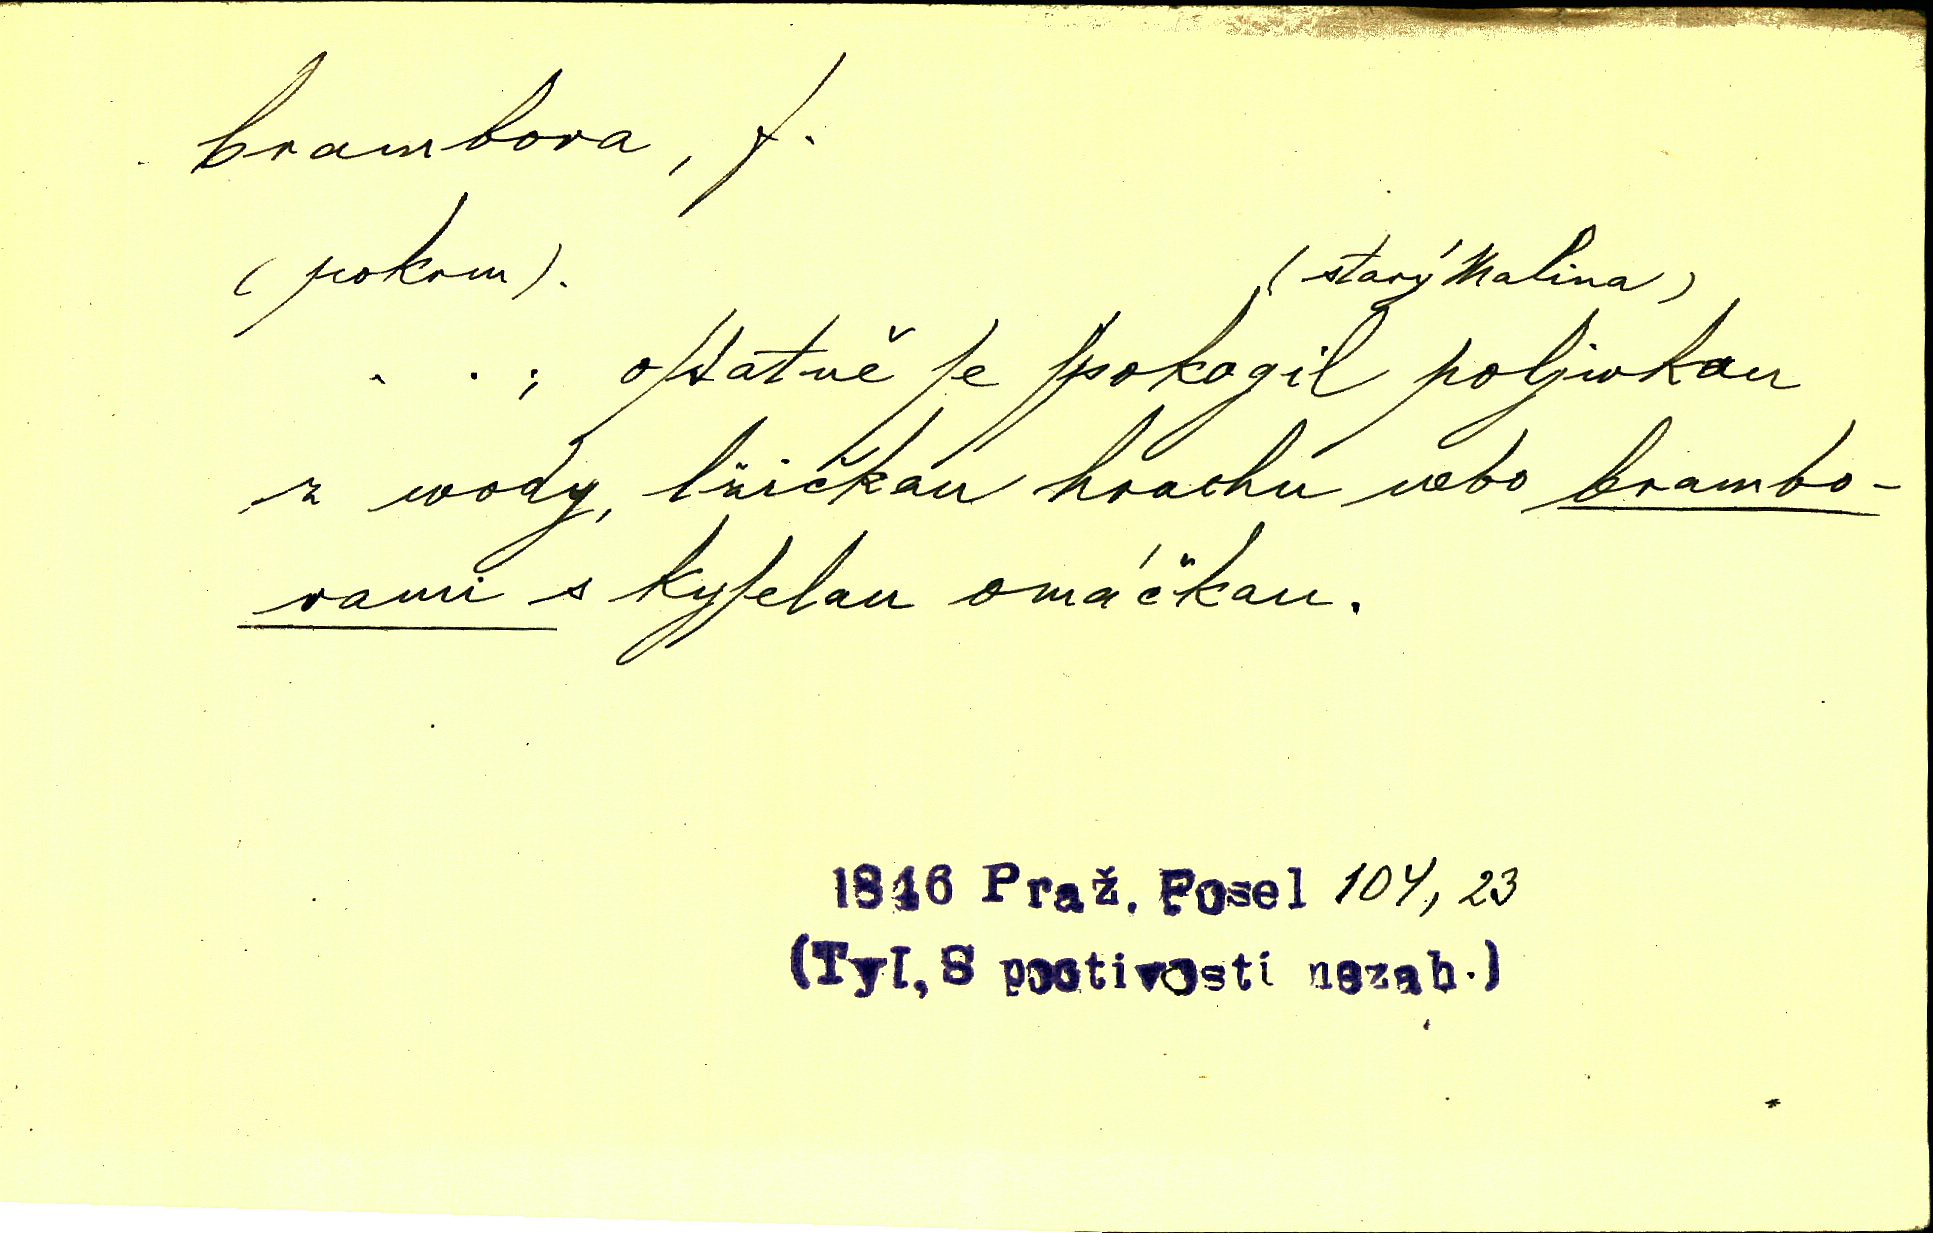 brambora, f.
(pokrm).
(starý Malina)
. . ; oſtatně ſe ſpokogil poljwkau
z wody, lžičkau hrachu nebo brambo-
rami s kyſelau omáčkau.
1846 Praž. Posel 104, 23
(Tyl, S poctivostí nezah.)